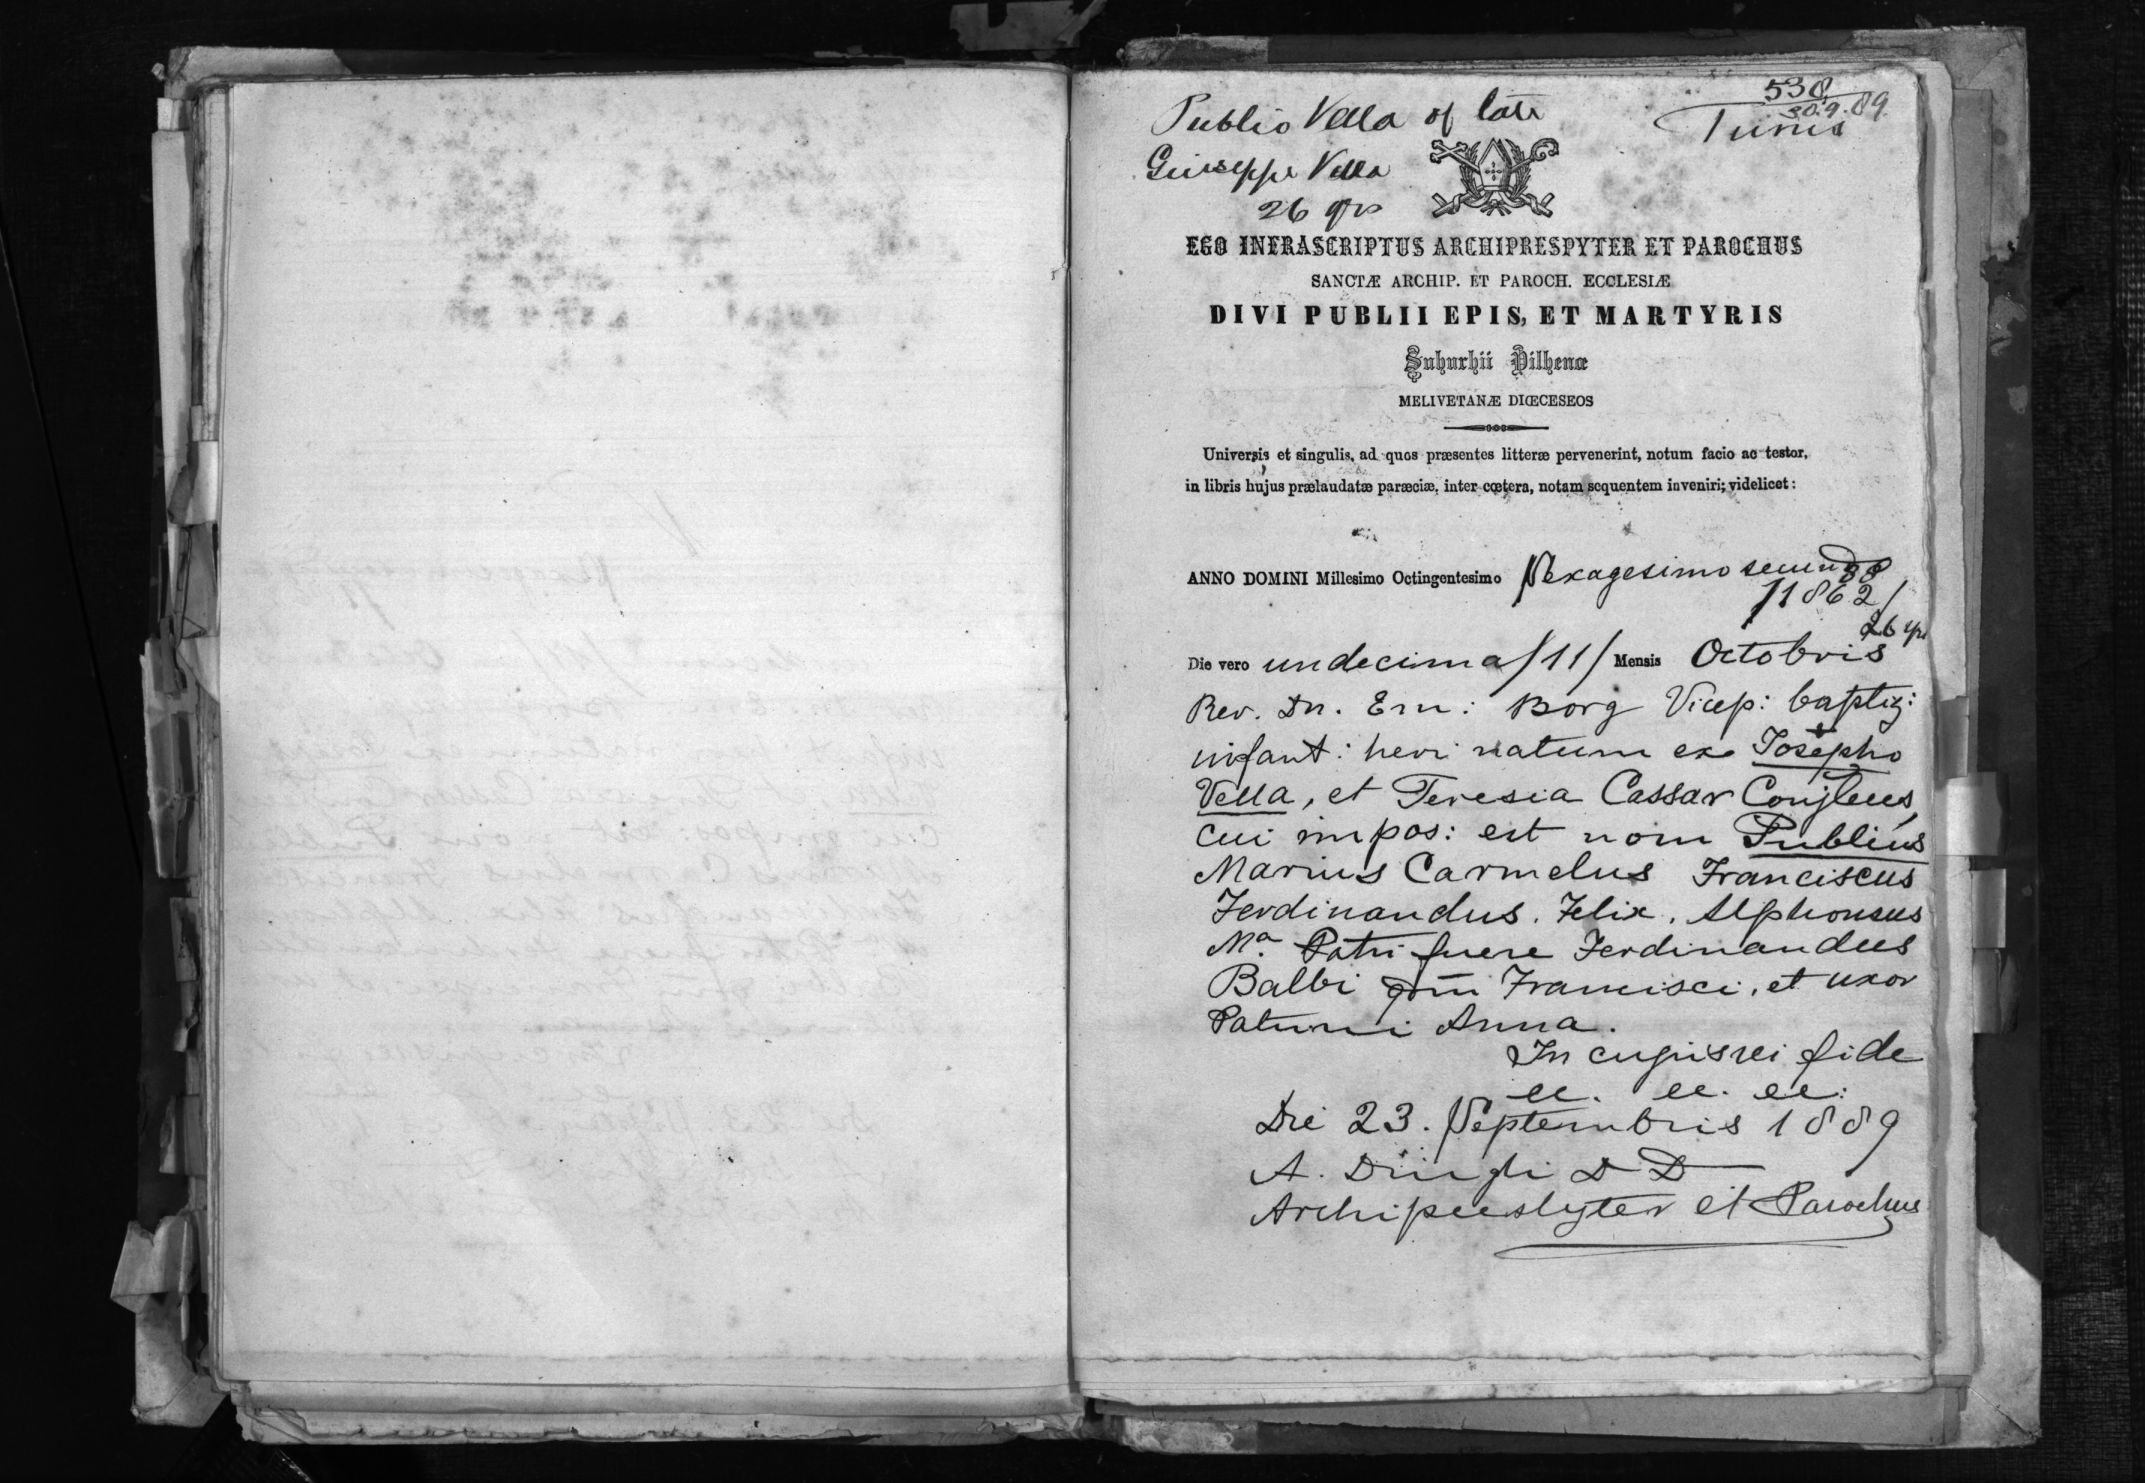 538
30.9.89
Publio Vella of late
Tunis
Giuseppe Vella
26 yrs
EGO INFRASCRIPTUS ARCHIPRESPYTER ET PAROCHUS
SANCTÆ ARCHIP. ET PAROCH. ECCLESIÆ
DIVI PUBLII EPIS, ET MARTYRIS
Suburbii Vilhenæ
MELIVETANÆ DIŒCESEOS
Universis et singulis, ad quos præsentes litteræ pervenerint, notum facio ac testor,
in libris hujus prælaudatæ parœciæ, inter cœtera, notam sequentem inveniri; videlicet:
ANNO DOMINI Millesimo Octingentesimo Sexagesimo secundo
88
/1862/
26 yrs
Die vero undecima /11/ Mensis Octobris
Rev. Dn. Em: Borg Vicep: baptiz:
infant: heri natum ex Josepho
Vella, et Teresia Cassar Conjbus,
cui impos: est nom Publius
Marius Carmelus Franciscus
Ferdinandus. Felix. Alphonsus
Ma. Patri fuere Ferdinandus
Balbi qm Francisci, et uxor
Patrini Anna.
In cujus rei fide
Die 23. Septembris 1889
A. Dingli D D
Archipresbyter et Parochus